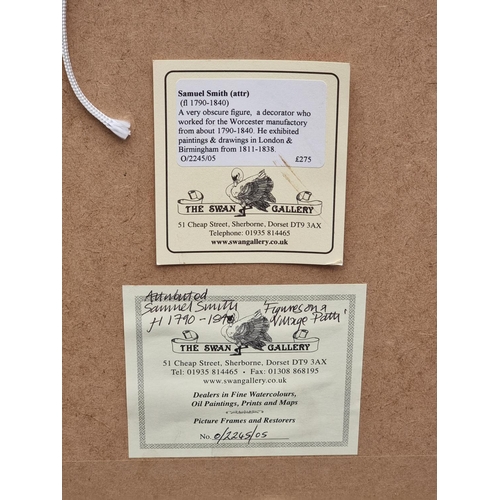 Samuel Smith (attr)
(fl 1790-1840)
A very obscure figure, a decorator who
worked for the Worcester manufactory
from about 1790-1840. He exhibited
paintings & drawings in London &
Birmingham from 1811-1838.
O/2245/05 £275
THE SWAN GALLERY
51 Cheap Street, Sherborne, Dorset DT9 3AX
Telephone: 01935 814465
www.swangallery.co.uk
Attributed
Samuel Smith 'Figures on a
fl 1790-1840 Village Path'
THE SWAN GALLERY
51 Cheap Street, Sherborne, Dorset DT9 3AX
Tel: 01935 814465 • Fax: 01308 868195
www.swangallery.co.uk
Dealers in Fine Watercolours,
Oil Paintings, Prints and Maps
Picture Frames and Restorers
No. O/2245/05